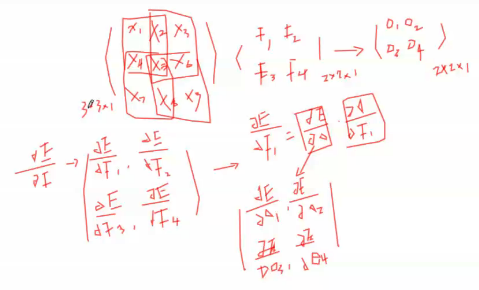 X₁ X₂ X₃
X₄ X₅ X₆
X₇ X₈ X₉
3*3x1
F₁ F₂
F₃ F₄
2x2x1
→
O₁ O₂
O₃ O₄
2x2x1
∂E/∂F →
∂E/∂F₁, ∂E/∂F₂
∂E/∂F₃, ∂E/∂F₄
→ ∂E/∂F₁ = ∂E/∂O · ∂O/∂F₁
∂E/∂O₁, ∂E/∂O₂
∂E/∂O₃, ∂E/∂O₄